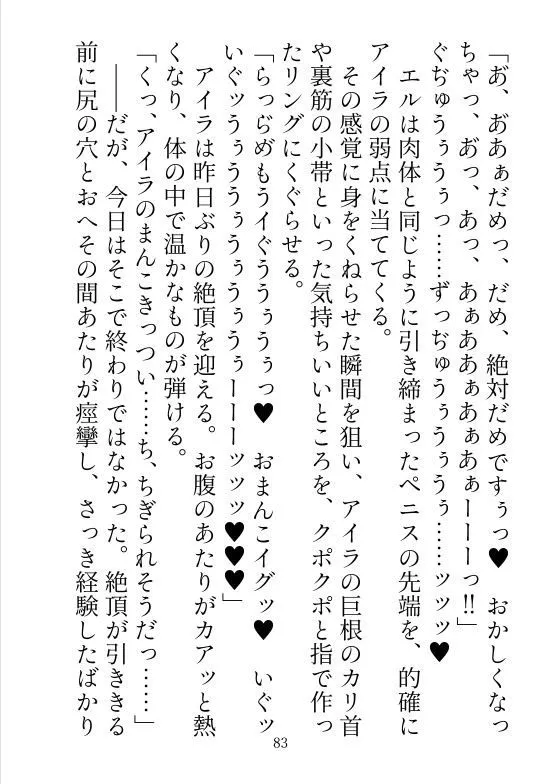 「お゛、お゛あぁだめっ、だめ、絶対だめですぅっ♥　おかしくなっ
ちゃっ、お゛っ、あっ、あぁああぁあぁあぁーーーっ!!」
ぐぢゅうぅうぅっ……ずっぢゅうぅうぅうぅ……ッッッ♥
エルは肉体と同じように引き締まったペニスの先端を、的確に
アイラの弱点に当ててくる。
その感覚に身をくねらせた瞬間を狙い、アイラの巨根のカリ首
や裏筋の小帯といった気持ちいいところを、クポクポと指で作っ
たリングにくぐらせる。
「らっらめもうイぐううぅうぅっ♥　おまんこイグッ♥　いぐッ
いぐッうぅううぅうぅうぅうぅーーーッッッ♥♥♥」
アイラは昨日ぶりの絶頂を迎える。お腹のあたりがカアッと熱
くなり、体の中で温かなものが弾ける。
「くっ、アイラのまんこきっつい……ち、ちぎられそうだっ……」
――だが、今日はそこで終わりではなかった。絶頂が引ききる
前に尻の穴とおへその間あたりが痙攣し、さっき経験したばかり
83